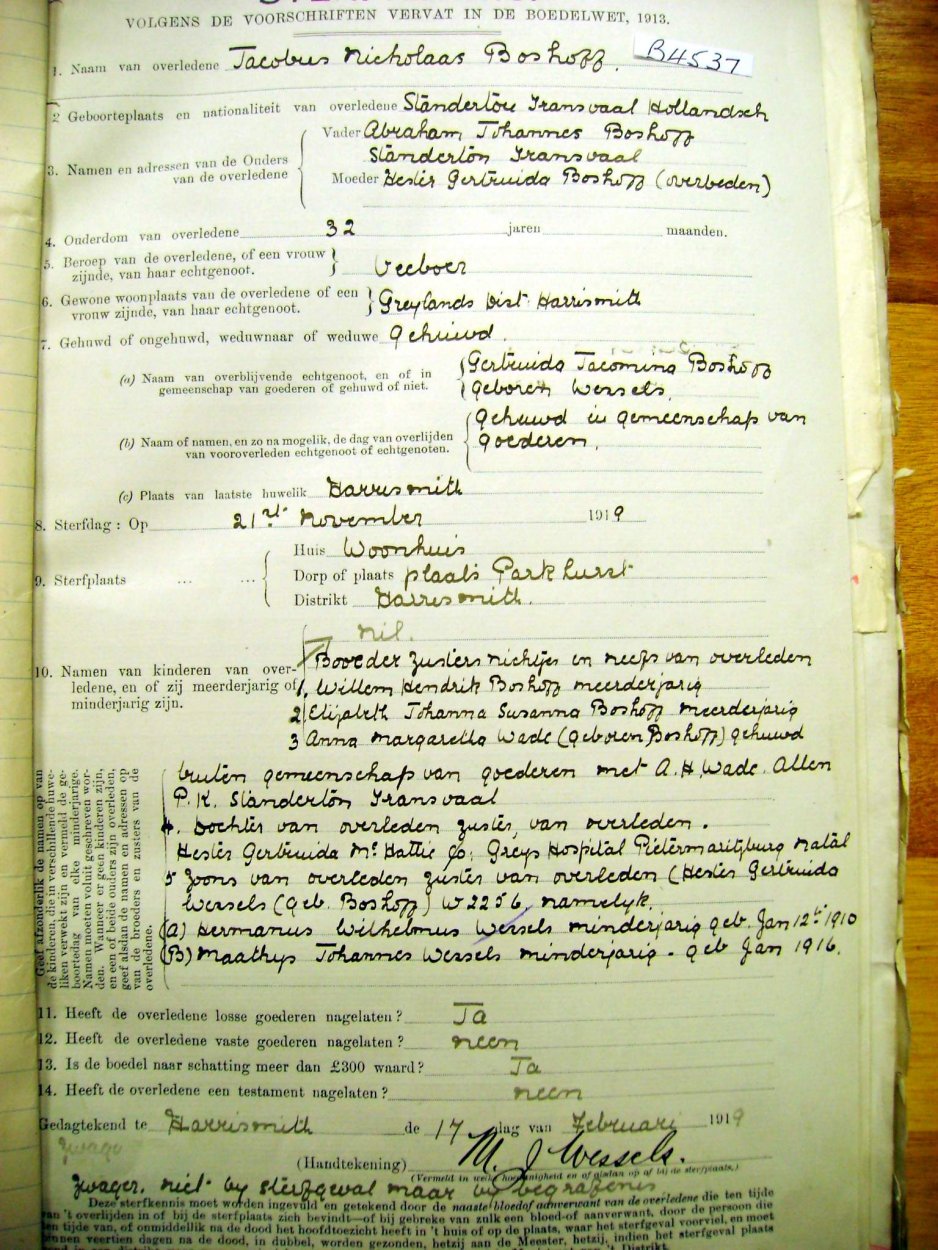 VOLGENS DE VOORSCHRIFTEN VERVAT IN DE BOEDELWET, 1913.
1. Naam van overledene Jacobus Nicholaas Boshoff. B4537
2 Geboorteplaats en nationaliteit van overledene Standerton Transvaal Hollandsch
3. Namen en adressen van de Ouders van de overledene
Vader Abraham Johannes Boshoff
Standerton Transvaal
Moeder Hester Gertruida Boshoff (overleden)
4. Ouderdom van overledene 32 jaren maanden.
5. Beroep van de overledene, of een vrouw
zijnde, van haar echtgenoot. Veeboer
6. Gewone woonplaats van de overledene of een
vrouw zijnde, van haar echtgenoot. Greylands Dist. Harrismith
7. Gehuwd of ongehuwd, weduwnaar of weduwe gehuwd.
(a) Naam van overblijvende echtgenoot, en of in
gemeenschap van goederen of gehuwd of niet.
Gertruida Jacomina Boshoff
geboren Wessels.
(b) Naam of namen, en zo na mogelik, de dag van overlijden
van vooroverleden echtgenoot of echtgenoten.
gehuwd in gemeenschap van
goederen.
(c) Plaats van laatste huwelik Harrismith
8. Sterfdag : Op 21st November 1919
9. Sterfplaats ... ...
Huis Woonhuis
Dorp of plaats plaats Parkhurst
Distrikt Harrismith.
nil.
10. Namen van kinderen van over-
ledene, en of zij meerderjarig of
minderjarig zijn.
Broeder zusters nichtjes en neefs van overleden
1, Willem Hendrik Boshoff meerderjarig
2 Elizabeth Johanna Susanna Boshoff meerderjarig
3 Anna Margaretta Wade (geboren Boshoff) gehuwd
buiten gemeenschap van goederen met A.H. Wade. Allen
P.K. Standerton Transvaal
4. Dochter van overleden zuster, van overleden.
Hester Gertruida Mc Hattie c/o; Greys Hospital Pietermaritzburg Natal
5 Zoons van overleden zuster van overleden (Hester Gertruida
Wessels (geb. Boshoff) W2256, namelyk.
(A) Hermanus Wilhelmus Wessels minderjarig geb. Jan 12th 1910
(B) Maathys Johannes Wessels minderjarig - geb Jan 1916.
Geef afzonderlik de namen op van
de kinderen, die in verschillende huwe-
liken verwekt zijn en vermeld de ge-
boortedag van elke minderjarige.
Namen moeten voluit geschreven wor-
den. Wanneer er geen kinderen zijn,
en een of beide ouders zijn overleden,
geef alsdan de namen en adressen op
van de broeders en zusters van de
overledene.
11. Heeft de overledene losse goederen nagelaten? Ja
12. Heeft de overledene vaste goederen nagelaten? neen
13. Is de boedel naar schatting meer dan £300 waard? Ja
14. Heeft de overledene een testament nagelaten? neen
Gedagtekend te Harrismith de 17 dag van Februari 1919
zwager
(Handtekening) M. J. Wessels.
(Vermeld in welke hoedanigheid en of alsdan op of bij de sterfplaats.)
Zwager, niet by sterfgeval maar by begrafenis
Deze sterfkennis moet worden ingevuld en getekend door de naaste bloed of aanverwant van de overledene die ten tijde
van 't overlijden in of bij de sterfplaats zich bevindt—of bij gebreke van zulk een bloed-of aanverwant, door de persoon die
ten tijde van, of onmiddellik na de dood het hoofdtoezicht heeft in 't huis of op de plaats, waar het sterfgeval voorviel, en moet
binnen veertien dagen na de dood, in dubbel, worden gezonden, hetzij aan de Meester, hetzij, indien het sterfgeval plaats